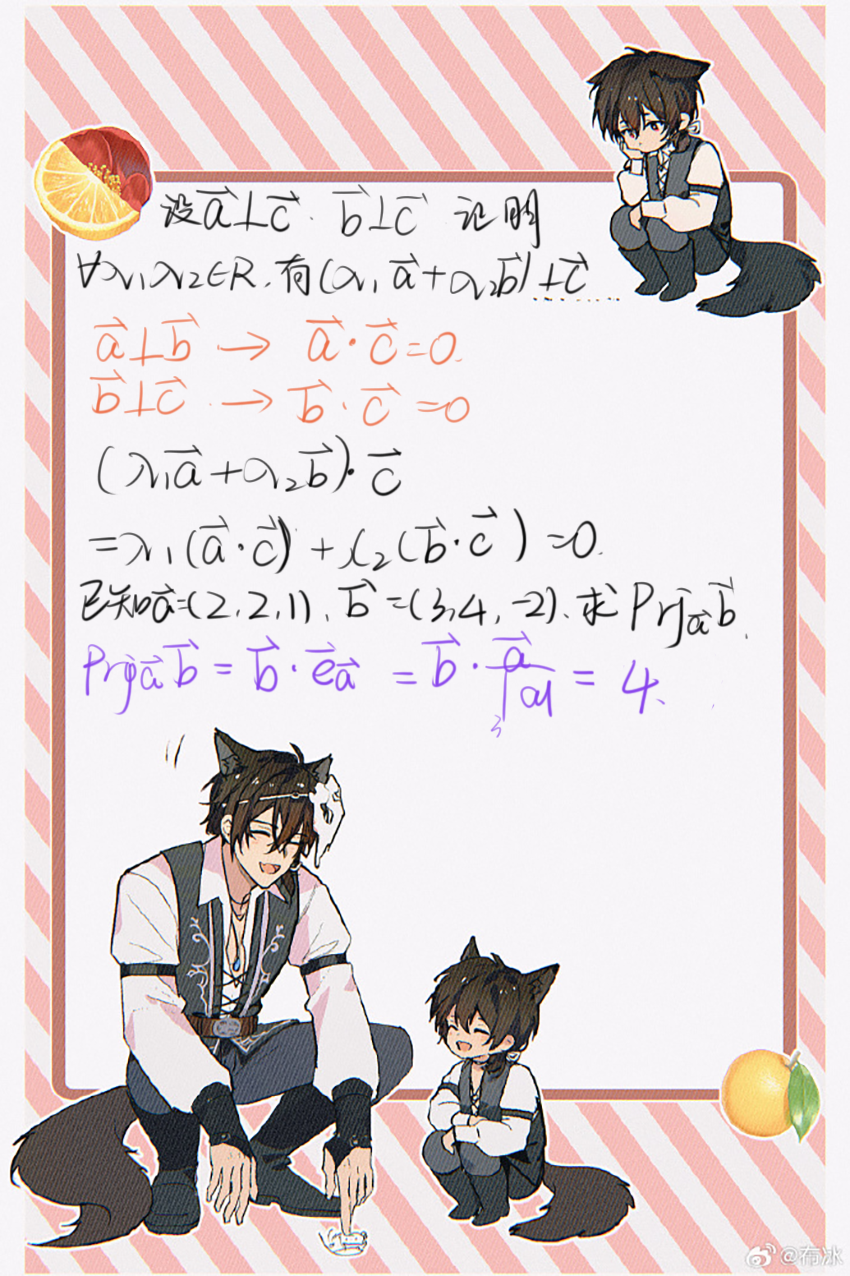 设a⃗⊥c⃗. b⃗⊥c⃗ 证明
∀λ₁λ₂∈R.有(λ₁a⃗+λ₂b⃗)⊥c⃗
a⃗⊥b⃗ → a⃗·c⃗=0.
b⃗⊥c⃗ → b⃗·c⃗=0
(λ₁a⃗+λ₂b⃗)·c⃗
=λ₁(a⃗·c⃗)+λ₂(b⃗·c⃗)=0.
已知a⃗=(2,2,1), b⃗=(3,4,-2).求Prj_a⃗ b⃗.
Prj_a⃗ b⃗ = b⃗·e⃗_a⃗ = b⃗·a⃗/|a| = 4.
3
@布冰